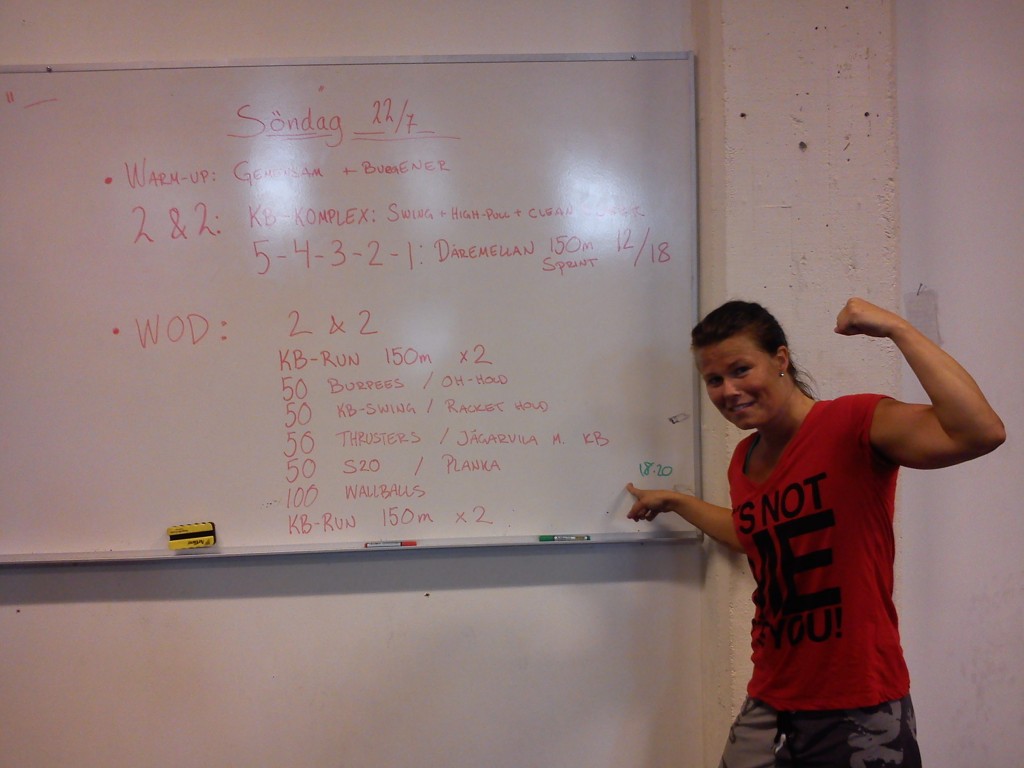 Söndag 22/7
• WARM-UP: GEMENSAM + BURGENER
2 & 2: KB-KOMPLEX: SWING + HIGH-PULL + CLEAN
5-4-3-2-1: DÄREMELLAN 150m SPRINT 12/18
• WOD: 2 & 2
KB-RUN 150m x2
50 BURPEES / OH-HOLD
50 KB-SWING / RACKET HOLD
50 THRUSTERS / JÄGARVILA M. KB
50 S20 / PLANKA
100 WALLBALLS
KB-RUN 150m x2
18:20
NOT
ME
YOU!